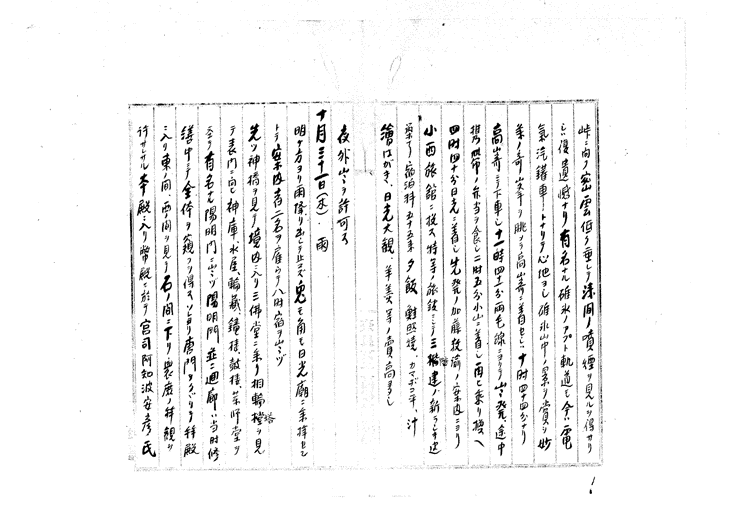 峠ニ向フ密雲低ク垂レテ浅間ノ噴煙ヲ見ルヲ得サリ
シハ優遺憾ナリ有名ナル碓氷ノアプト軌道モ今ハ電
氣汽鑵車トナリタル心地ヨシ碓氷山中ノ景ヲ賞シ妙
義ノ奇峯ヲ眺メテ高崎ニ着セシハ十時四十四分ナリ
高崎ニテ下車シ十一時四五分両毛線ニヨリテ出発、途中
携帯ノ弁当ヲ食シ二時五分小山ニ着シ南ヒ乗リ換ヘ
四時四十分日光ニ着シ先発ノ加藤教諭ノ案内ニヨリ
小西旅館ニ投ス特等ノ旅舘ニシテ三階建ノ新ラシキ建
築ナリ宿泊料五十五銭夕飯 、カマボコ、汁
繪はがき、日光大観 羊羹等ノ賣高多シ
夜外出ヲ許可ス
十月三十一日(水) 雨
明ケ方ヨリ雨降リ出シテ止マズ兎モ角モ日光廟ニ参拝セン
トテ案内者二名ヲ雇ヒテ八時宿ヲ出ヅ
先ツ神橋ヲ見テ境内ニ入リ三佛堂ニ参リ相輪橖ヲ見
テ表門ニ向ヒ神庫水屋、輪蔵鐘楼鼓楼薬師堂ヲ
ミテ有名ナル陽明門ニ出ヅ陽明門並ニ廻廊ハ当時修
繕中ニテ全体ヲ窺フヲ得ズソレヨリ唐門ヲクグリテ拝殿
ニ入リ東ノ間、西ノ間ヲ見テ石ノ間ニ下リ、装飾ノ拝観ヲ
許サレタル本殿ニ入リ幣殿ニ於テ宮司阿知波安彦氏